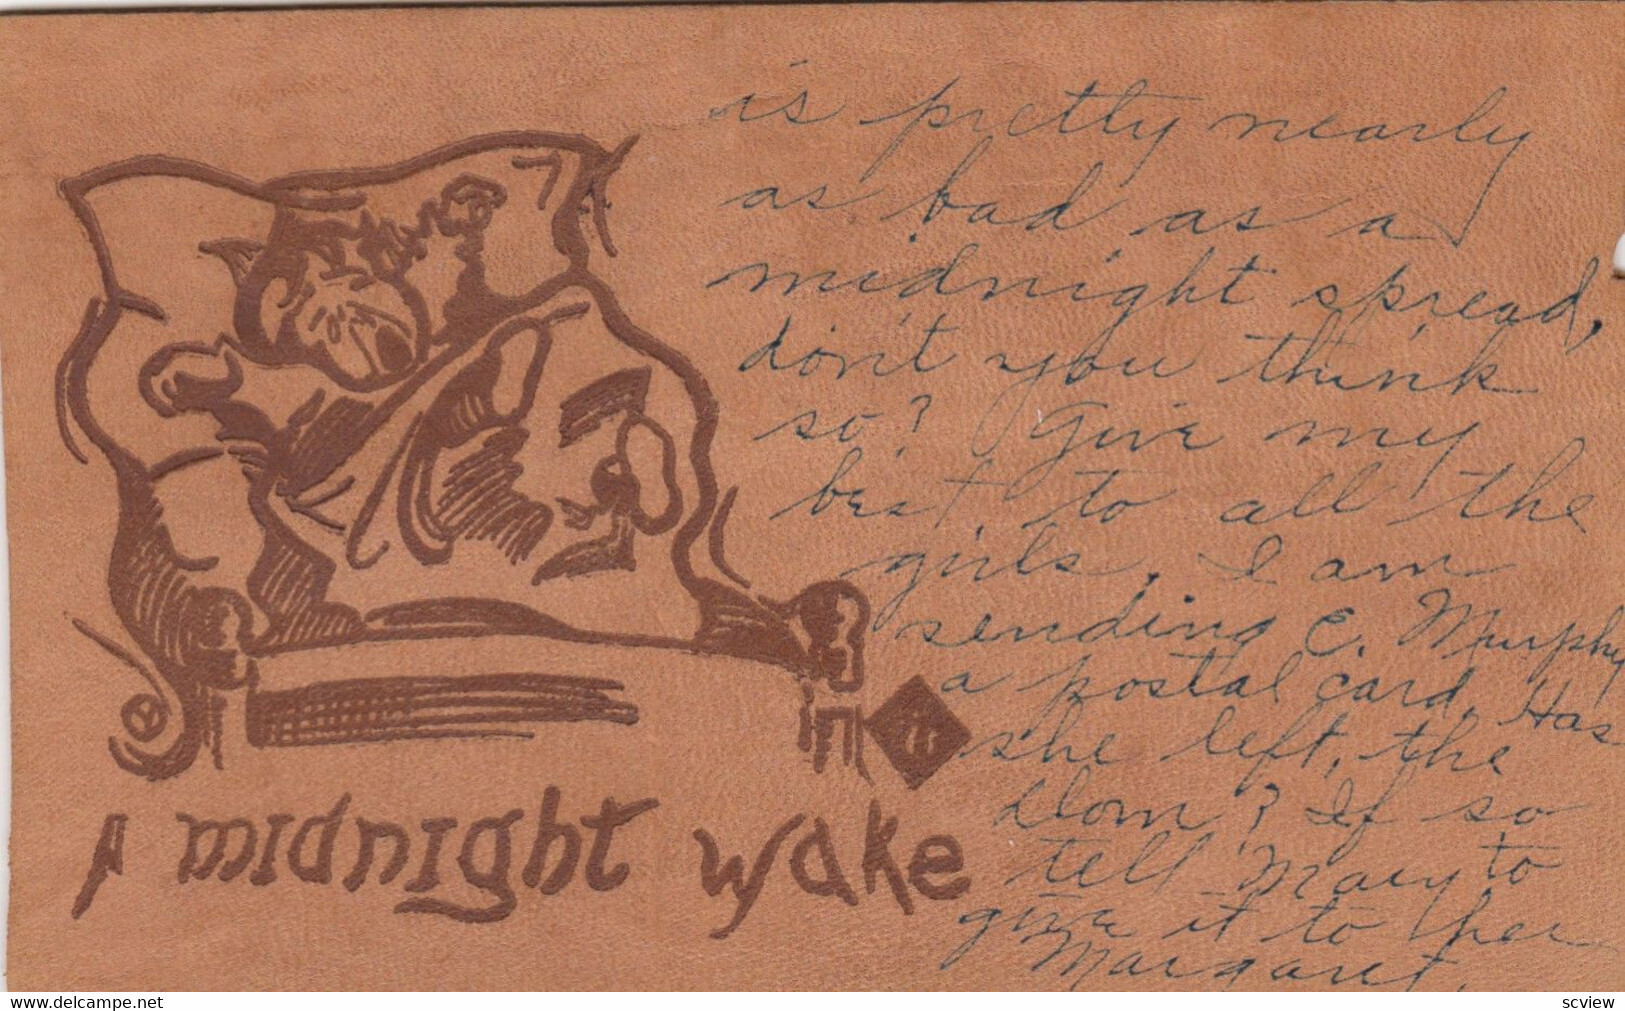 A midnight wake
is pretty nearly
as bad as a
midnight spread,
don't you think
so? Give my
best to all the
girls. I am
sending E. Murphy
a postal card. Has
she left, the
Dom? If so
tell Mary to
give it to her
Margaret.
delcampe.net
scview